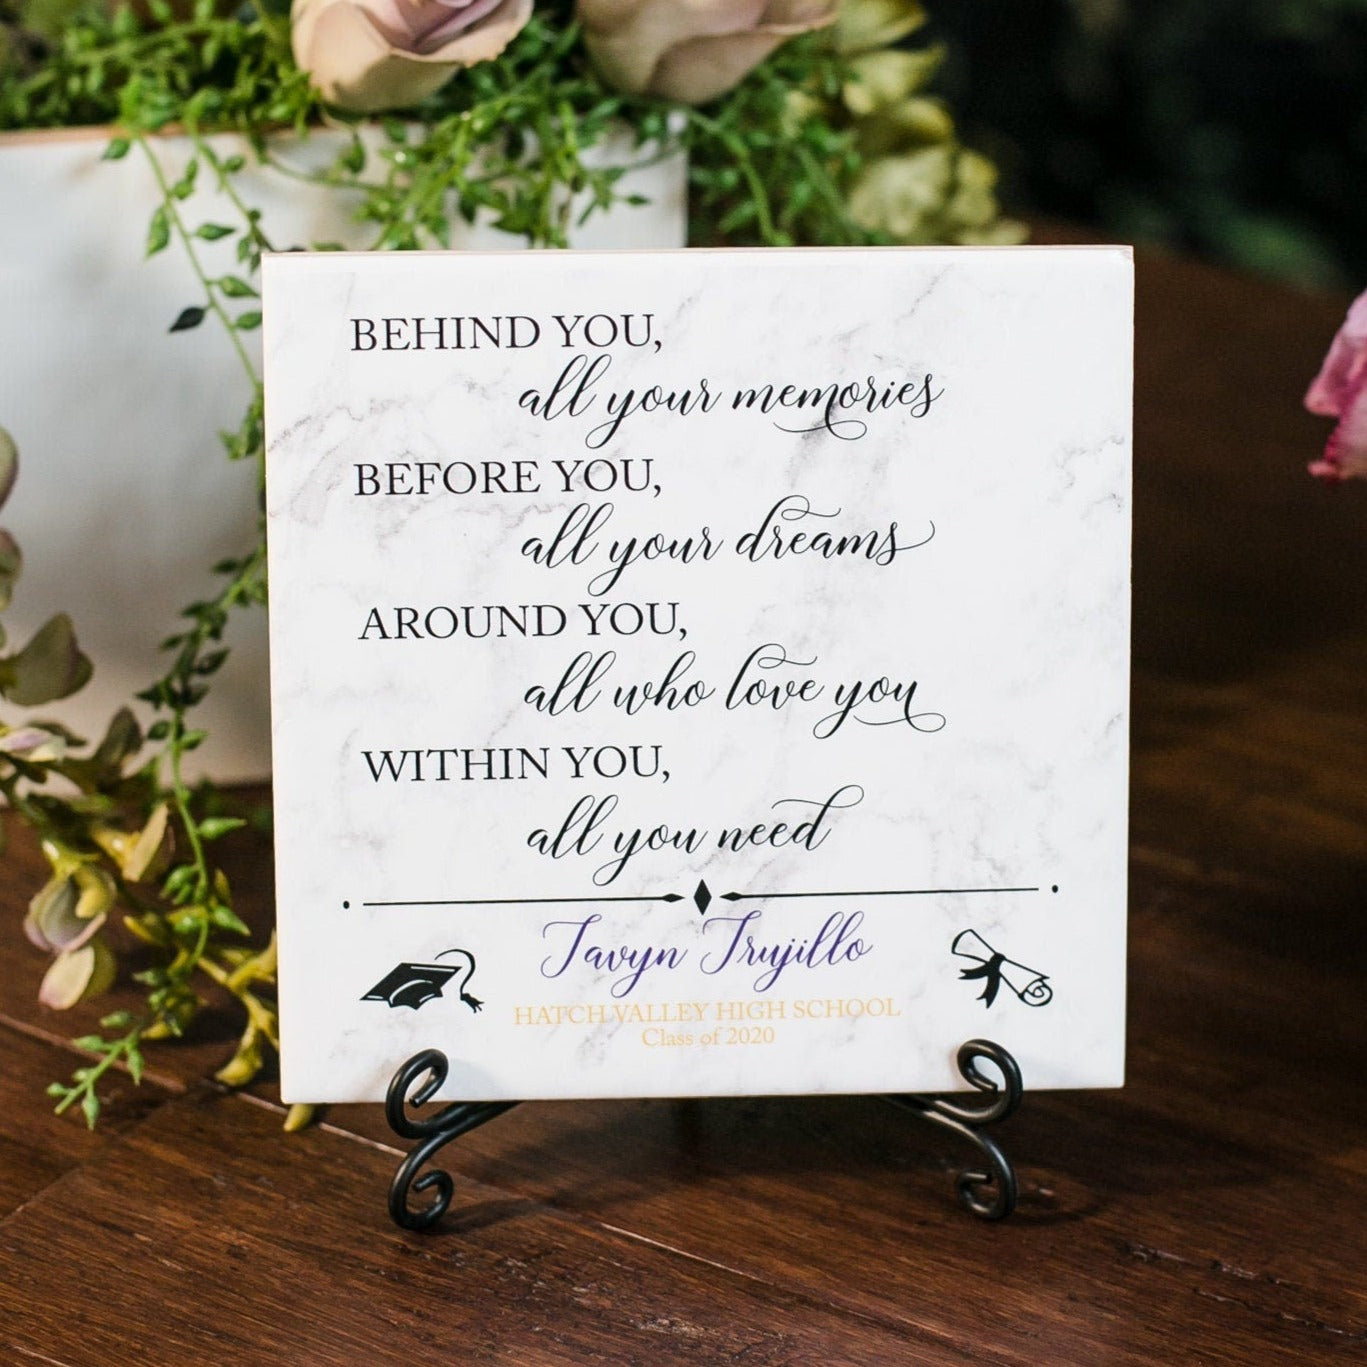 BEHIND YOU,
all your memories
BEFORE YOU,
all your dreams
AROUND YOU,
all who love you
WITHIN YOU,
all you need
Tavyn Trujillo
HATCH VALLEY HIGH SCHOOL
Class of 2020